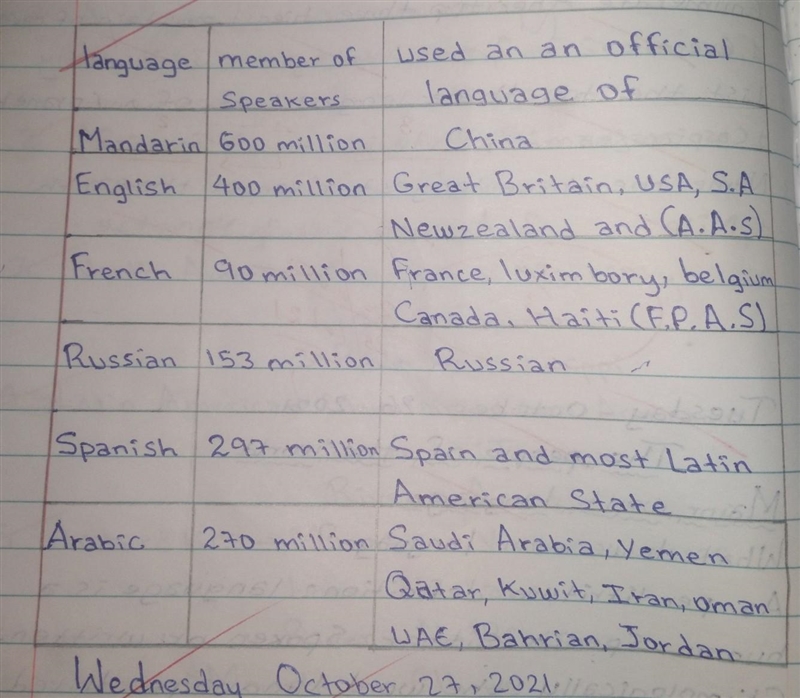 language member of used an an official
Speakers language of
Mandarin 600 million China
English 400 million Great Britain, USA, S.A
Newzealand and (A.A.S)
French 90 million France, luxim bory, belgium
Canada, Haiti (F.P.A.S)
Russian 153 million Russian
Spanish 297 million Spain and most Latin
American State
Arabic 270 million Saudi Arabia, Yemen
Qatar, Kuwit, Iran, oman
UAE, Bahrian, Jordan
Wednesday October 27, 2021.